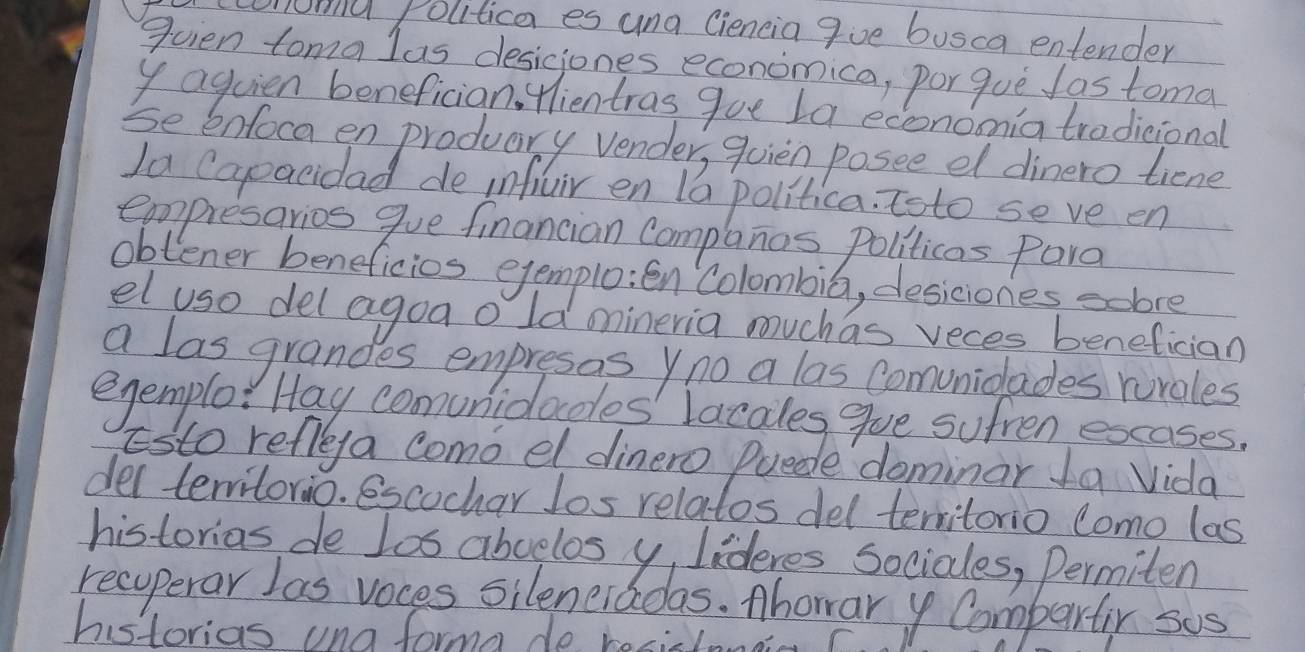 Política es una Ciencia que busca entender
quien toma las desiciones económica, por qué las toma
y aquien benefician. Mientras que La economía tradicional
se enfoca en producir y vender, quién posee el dinero tiene
La Capacidad de influir en la política. Esto se ve en
empresarios que financian Compañas Políticas Para
obtener beneficios ejemplo: En Colombia, desiciones sobre
el uso del agua o la mineria muchas veces benefician
a las grandes empresas y no a las comunidades rurales
egemplo: Hay comunidades Lacales que sufren escases.
Esto refleja como el dinero Puede dominar La Vida
del territorio. Escuchar los relatos del territorio como las
historias de los abuelos y líderes Sociales, Permiten
recuperar las voces silenciadas. Ahorrar y Compartir sus
historias una forma de